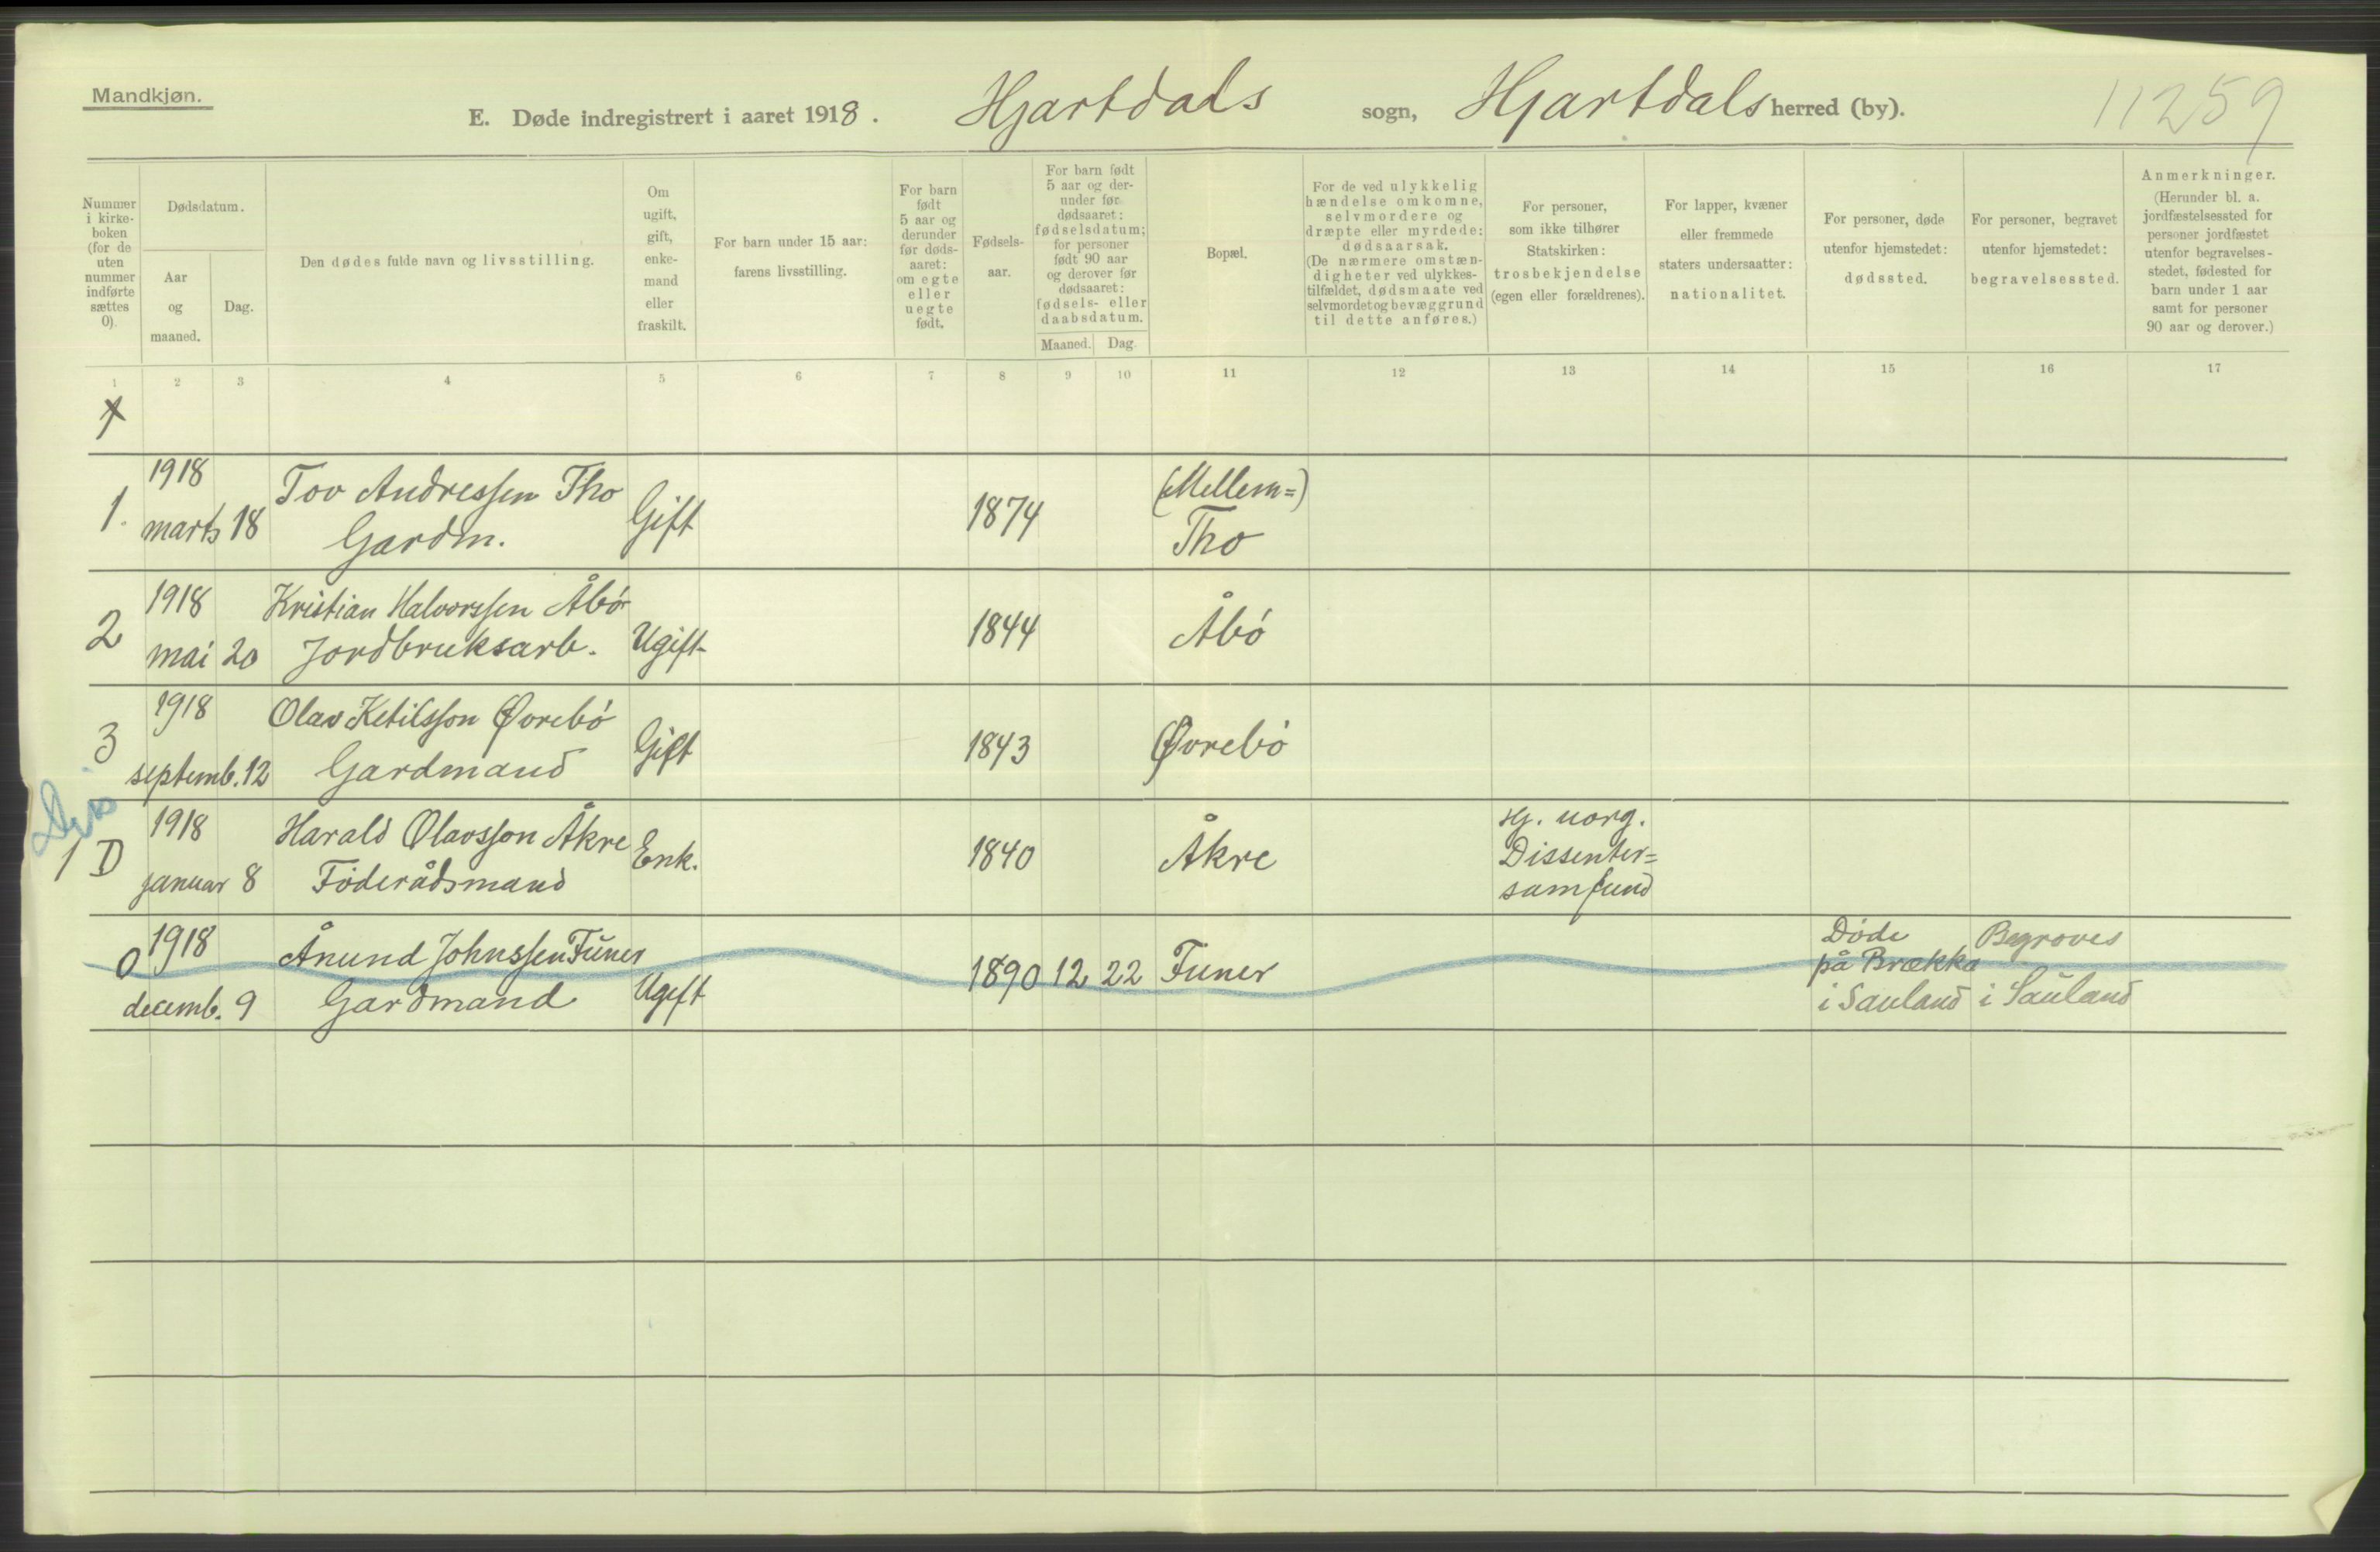 Mandkjøn.
E. Døde indregistrert i aaret 1918. Hjartdals sogn, Hjartdals herred (by).
11259
Nummer i kirke-boken (for de uten nummer indførte sættes 0).
Dødsdatum.
Aar og maaned.
Dag.
Den dødes fulde navn og livsstilling.
Om ugift, gift, enke-mand eller fraskilt.
For barn under 15 aar: farens livsstilling.
For barn født 5 aar og derunder før døds-aaret: om egte eller uegte født.
Fødsels-aar.
For barn født 5 aar og der-under før dødsaaret: fødselsdatum; for personer født 90 aar og derover før dødsaaret: fødsels- eller daabsdatum.
Maaned. Dag.
Bopæl.
For de ved ulykkelig hændelse omkomne, selvmordere og dræpte eller myrdede: dødsaarsak. (De nærmere omstæn-digheter ved ulykkes-tilfældet, dødsmaate ved selvmordet og bevæggrund til dette anføres.)
For personer, som ikke tilhører Statskirken: trosbekjendelse (egen eller forældrenes).
For lapper, kvæner eller fremmede staters undersaatter: nationalitet.
For personer, døde utenfor hjemstedet: dødssted.
For personer, begravet utenfor hjemstedet: begravelsessted.
Anmerkninger. (Herunder bl. a. jordfæstelsessted for personer jordfæstet utenfor begravelses-stedet, fødested for barn under 1 aar samt for personer 90 aar og derover.)
1 2 3 4 5 6 7 8 9 10 11 12 13 14 15 16 17
1918 Tov Andressen Tho (Mellem=)
1. marts 18 Gardm. Gift 1874 Tho
1918 Kristian Halvorssen Åbø
2 mai 20 Jordbruksarb. Ugift 1844 Åbó
1918 Olav Ketilsson Øvrebó
3 septemb. 12 Gardmand Gift 1843 Øvrebó
1918 Harald Olavsson Åkre Hj. uorg.
1 D Enk. 1840 Åkre Dissenter=
januar 8 Föderådsmand samfund
1918 Ånund Johnssen Funer Döde Begraves
0 1890 12 22 Funer på Brækka
decemb. 9 Gardmand Ugift i Sauland i Sauland